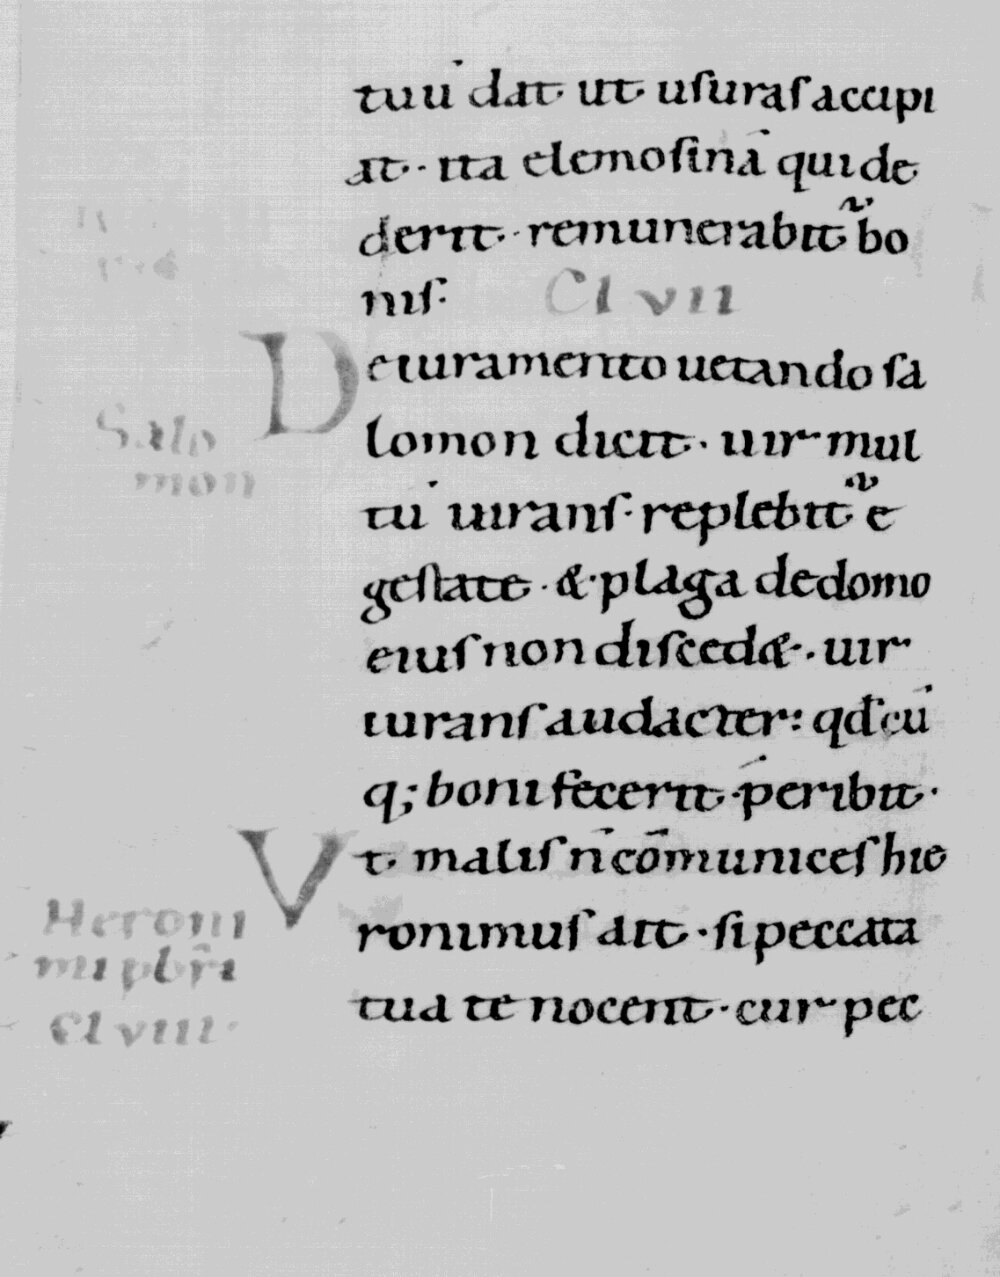 tuū dat ut uſuraſ accipi
at · ita elemoſinā qui de
derit · remunerabit᷑ bo
niſ · CLVII
De iuramento uetando ſa
Salo
lomon dicit · uir mul
mon
tū iuranſ · replebit᷑ e
geſtate · & plaga de domo
eiuſ non diſced& · uir
iuranſ audacter : qđ cū
q; boni fecerit · peribit ·
Vt maliſ n̄ cōmuniceſ hie
Heroni
ronimuſ ait · ſi peccata
mi pb̄ri
tua te nocent · cur pec
CLVIII ·